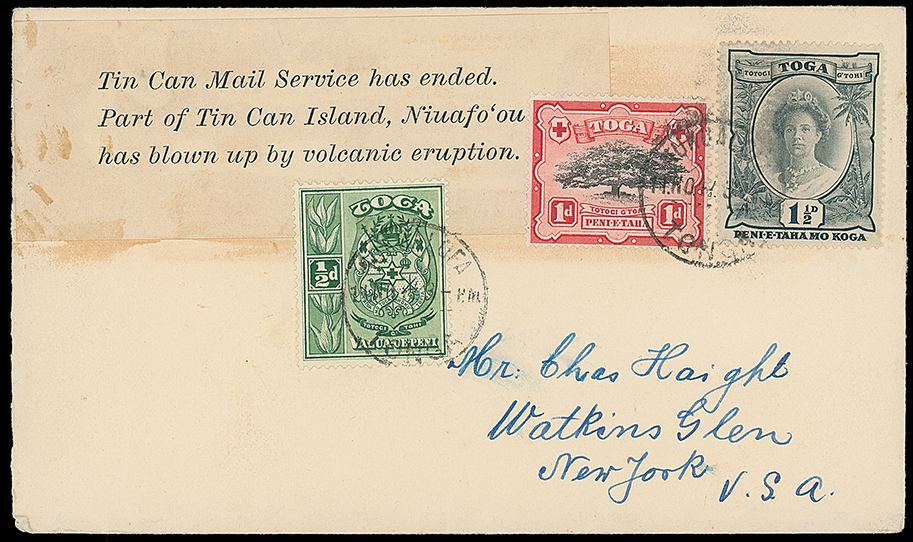 Tin Can Mail Service has ended.
Part of Tin Can Island, Niuafo‘ou
has blown up by volcanic eruption.
TOGA
½d
TOTOGI G TOHI
VAEUA-OE-PENI
TOGA
1d 1d
TOTOGI G'TOHI
PENI-E-TAHA
TOTOGI TOGA G'TOHI
1½D
PENI-E-TAHA MO KOGA
TONGA
Mr. Chas Haight
Watkins Glen
New York
U. S. A.